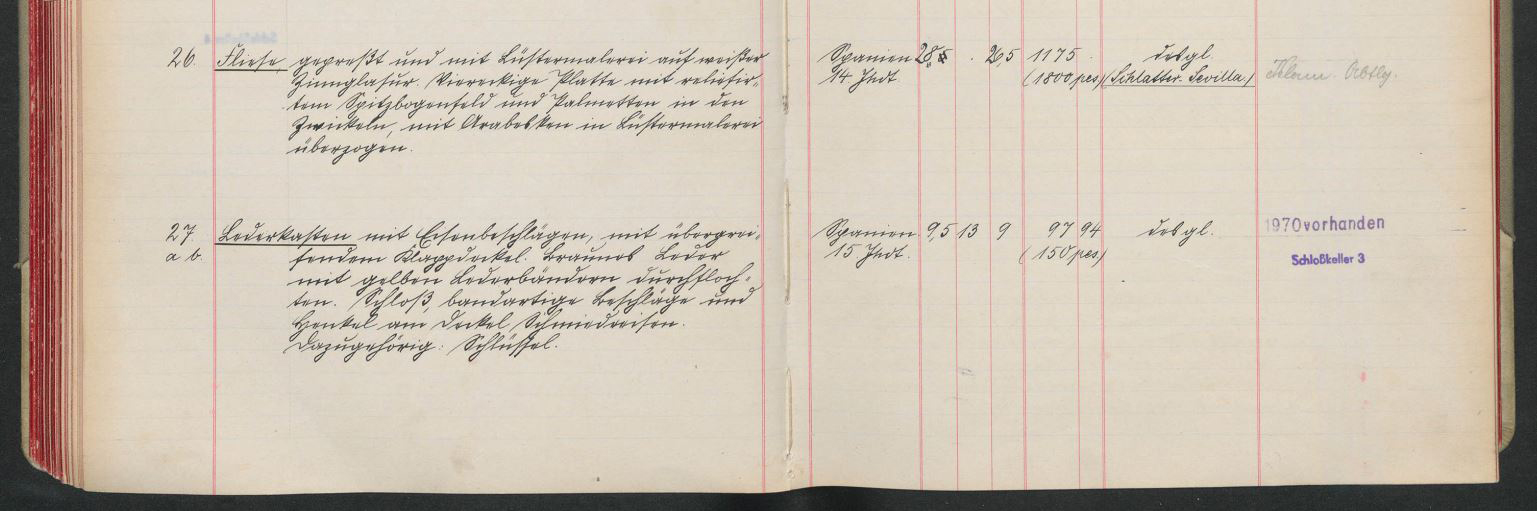 26. Fliese, gepreßt und mit Lüstermalerei auf weißer Spanien 28,5 . 26,5 1175. desgl. Islam. Abtlg.
Zinnglasur. Viereckige Platte mit reliefir- 14 Jhdt. (1800 pes) (Schlatter. Sevilla.)
tem Spitzbogenfeld und Palmetten in den
Zwickeln, mit Arabesken in Lüstermalerei
überzogen.
27. Lederkasten mit Eisenbeschlägen, mit übergrei- Spanien 9,5 13 9 97 94 desgl. 1970 vorhanden
a b. fendem Klappdeckel. Braunes Leder 15 Jhdt. (150 pes) Schloßkeller 3
mit gelben Lederbändern durchfloch-
ten. Schloß, bandartige Beschläge und
Henkel am Deckel Schmiedeeisen.
Dazugehörig: Schlüssel.